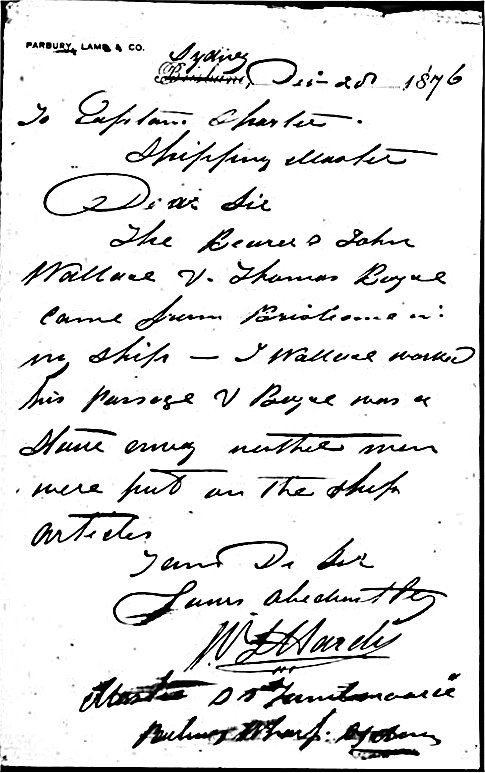 PARBURY, LAMB & CO.
Sydney
Brisbane, Dec 28 1876
To Captain Charter.
Shipping Master
Dear Sir
The Bearers John
Wallace & Thomas Boyce
came from Brisbane in
my ship — J Wallace worked
his passage & Boyce was a
Stowaway neither men
were put on the ship
articles
I am Dr Sir
Yours obediently
W J Hardie
Master SS
Wharf. Sydney